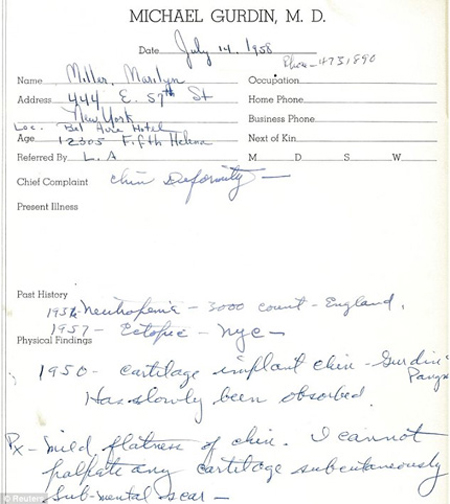 MICHAEL GURDIN, M. D.
Date July 14, 1958
Phone - 4731890
Name Miller, Marilyn
Occupation
Address 444 E. 57th St
Home Phone
New York
Business Phone
Loc. Bel Aire Hotel
Age 12305 Fifth Helena
Next of Kin
Referred By L. A
M D S W
Chief Complaint Chin Deformity —
Present Illness
Past History
Neutropenia - 3000 count - England.
1957 - Ectopic - NYC —
Physical Findings
1950 - cartilage implant chin - Gurdin
Has slowly been absorbed.
Px - Mild flatness of chin. I cannot
palpate any cartilage subcutaneously
Sub-mental scar —
© Reuters